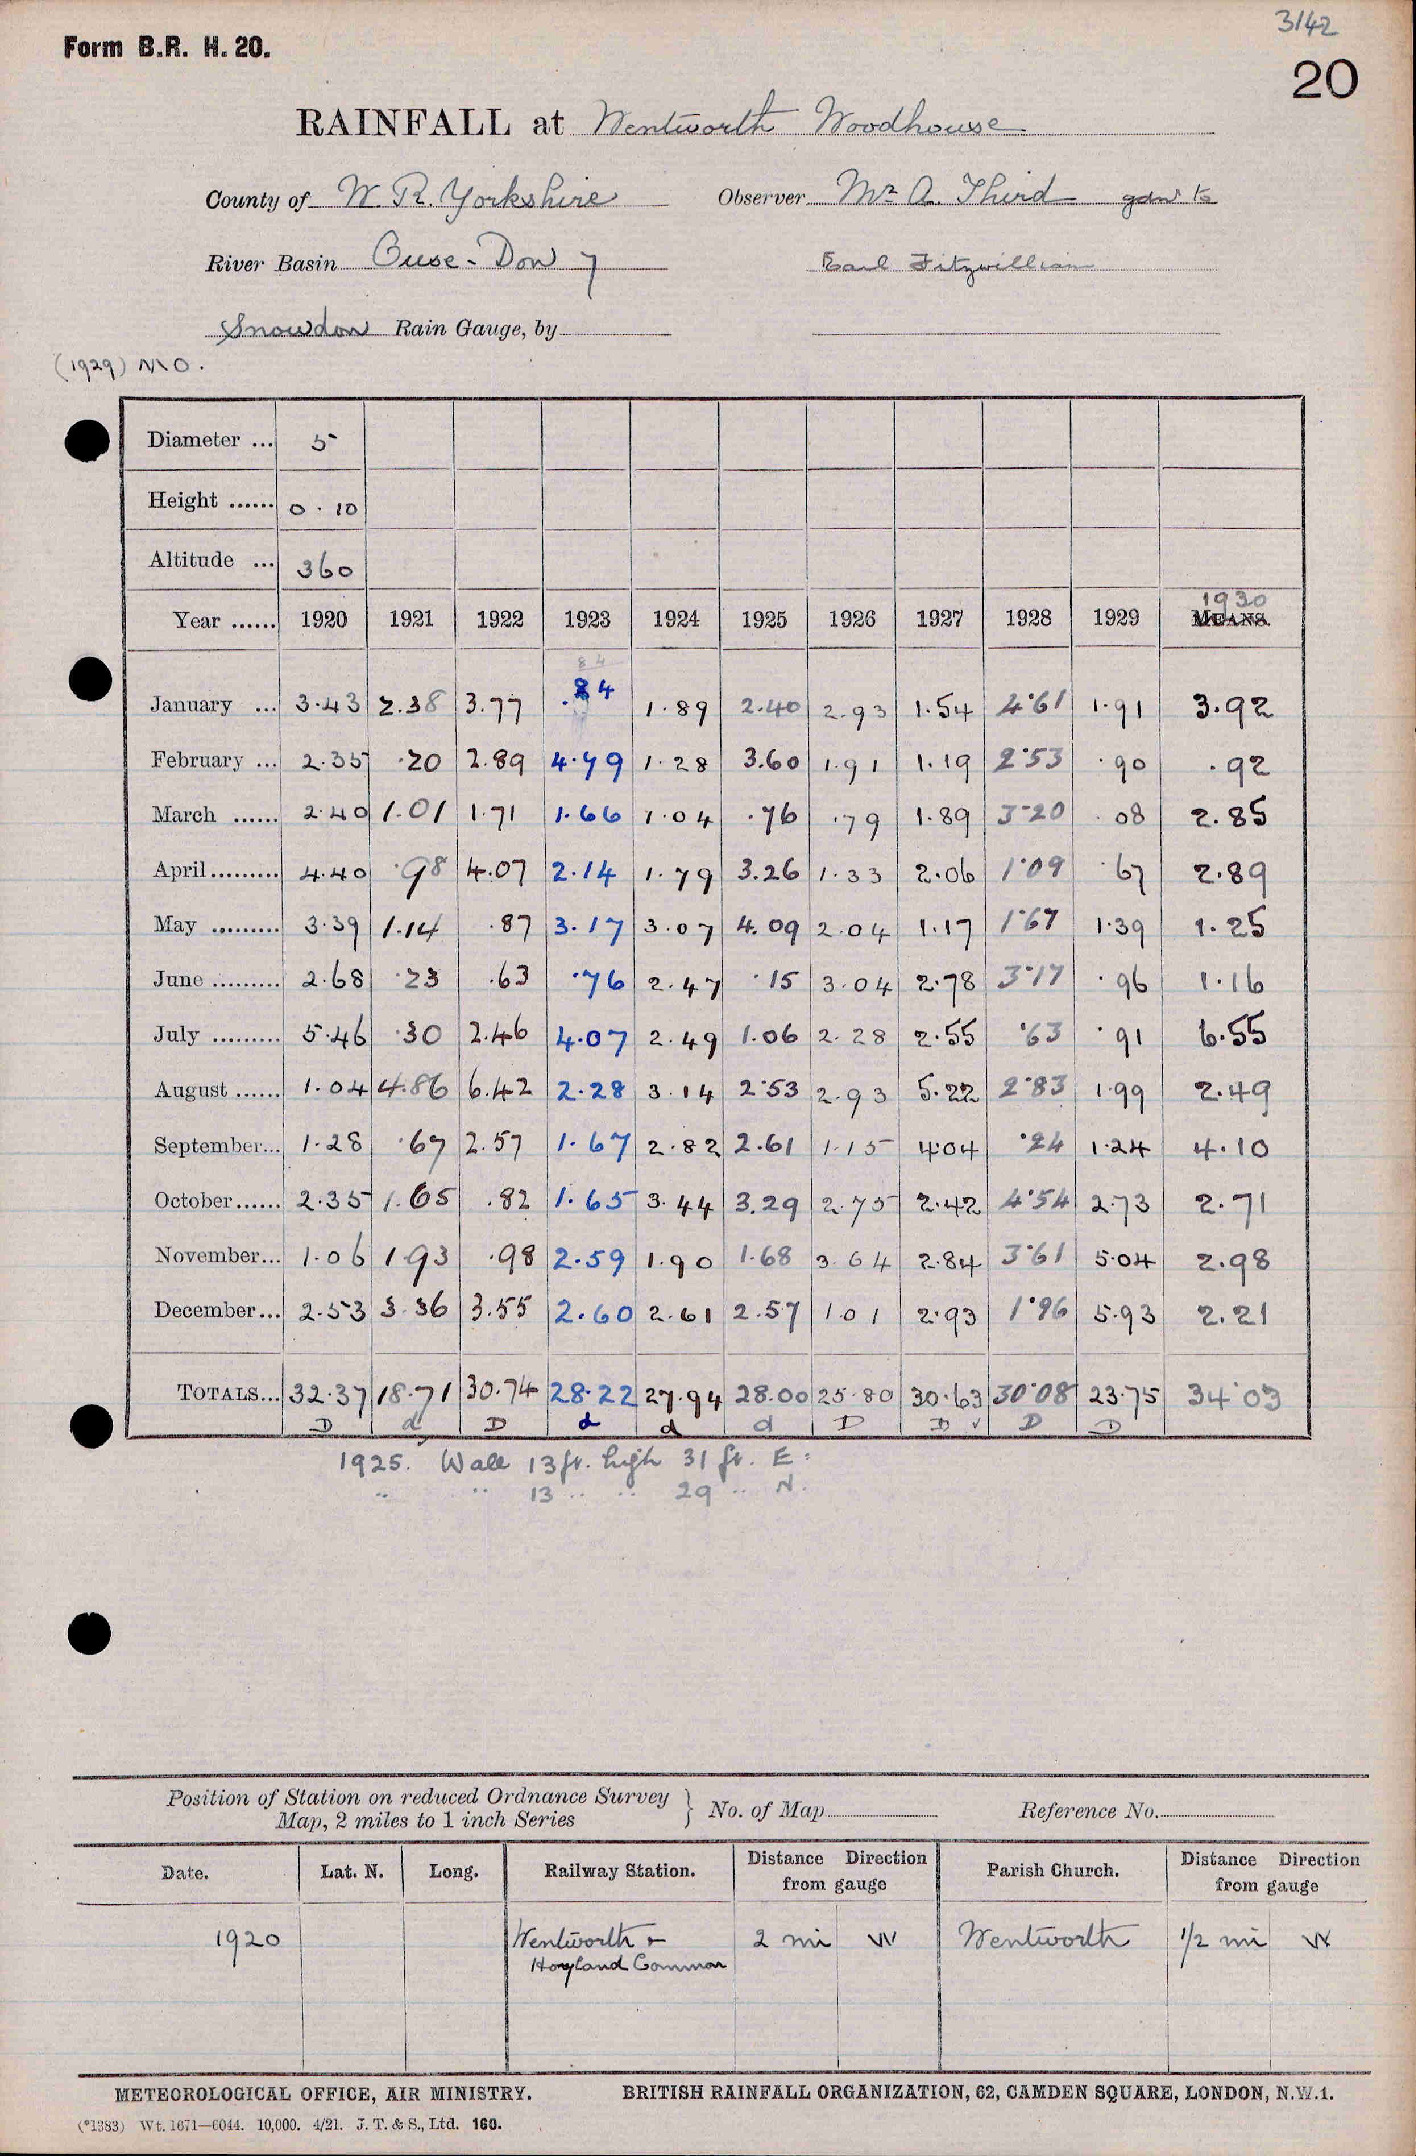 3142
Form B.R. H. 20.
20
RAINFALL at Wentworth Woodhouse
County of W. R. Yorkshire Observer Mr A. Third gdnr to
River Basin Ouse - Don 7 Earl Fitzwilliam
Snowdon Rain Gauge, by
(1929) M O.
Diameter ... 5
Height ...... 0 . 10
Altitude ... 360
1930
Year ...... 1920 1921 1922 1923 1924 1925 1926 1927 1928 1929 MEANS.
84
January ... 3.43 2.38 3.77 .84 1.89 2.40 2.93 1.54 4.61 1.91 3.92
February ... 2.35 .20 2.89 4.79 1.28 3.60 1.91 1.19 2.53 .90 .92
March ...... 2.40 1.01 1.71 1.66 1.04 .76 .79 1.89 3.20 .08 2.85
April......... 4.40 .98 4.07 2.14 1.79 3.26 1.33 2.06 1.09 .67 2.89
May ......... 3.39 1.14 .87 3.17 3.07 4.09 2.04 1.17 1.67 1.39 1.25
June ......... 2.68 .23 .63 .76 2.47 .15 3.04 2.78 3.17 .96 1.16
July ......... 5.46 .30 2.46 4.07 2.49 1.06 2.28 2.55 .63 .91 6.55
August ...... 1.04 4.86 6.42 2.28 3.14 2.53 2.93 5.22 2.83 1.99 2.49
September... 1.28 .67 2.57 1.67 2.82 2.61 1.15 4.04 .24 1.24 4.10
October...... 2.35 1.65 .82 1.65 3.44 3.29 2.75 2.42 4.54 2.73 2.71
November... 1.06 1.93 .98 2.59 1.90 1.68 3.64 2.84 3.61 5.04 2.98
December... 2.53 3.36 3.55 2.60 2.61 2.57 1.01 2.93 1.96 5.93 2.21
TOTALS... 32.37 18.71 30.74 28.22 27.94 28.00 25.80 30.63 30.08 23.75 34.03
D d D d d d D D ✓ D D
1925. Wall 13 ft. high 31 ft. E.
" " 13 " " 29 " N.
Position of Station on reduced Ordnance Survey } No. of Map Reference No.
Map, 2 miles to 1 inch Series
Date. Lat. N. Long. Railway Station. Distance Direction from gauge Parish Church. Distance Direction from gauge
1920 Wentworth & 2 mi W Wentworth 1/2 mi W
Hoyland Common
METEOROLOGICAL OFFICE, AIR MINISTRY. BRITISH RAINFALL ORGANIZATION, 62, CAMDEN SQUARE, LONDON, N.W.1.
(*1383) Wt. 1671—6044. 10,000. 4/21. J. T. & S., Ltd. 160.